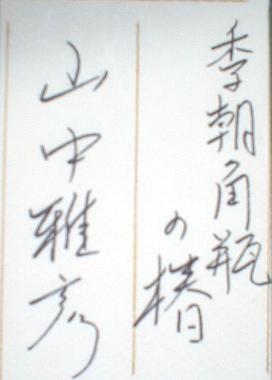 李朝角瓶
の椿
山中雅彦